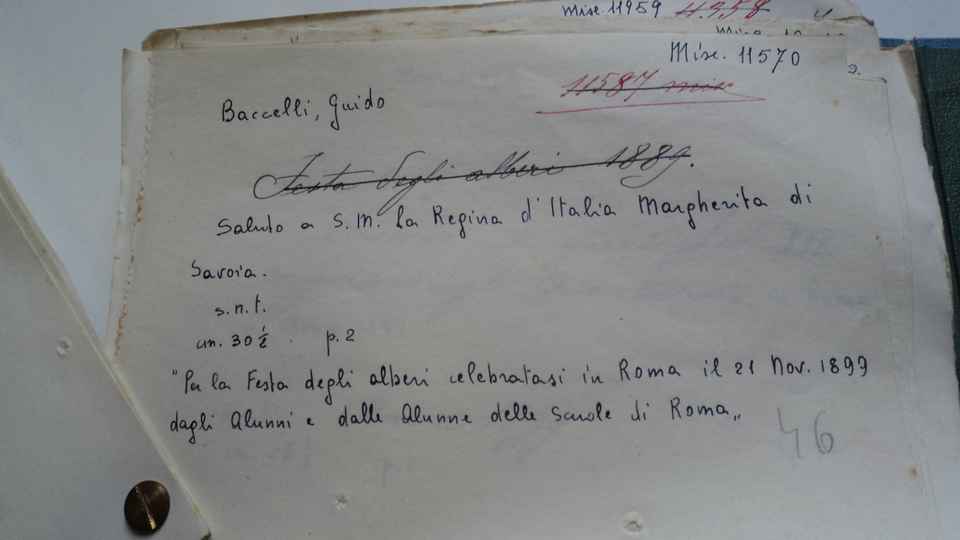 Misc 11959 11958
Misc. 11570
11587 misc
Baccelli, Guido
Festa degli alberi 1889.
Saluto a S.M. la Regina d'Italia Margherita di
Savoia.
s.n.t.
cm. 30 ½ . p. 2
"Per la Festa degli alberi celebratasi in Roma il 21 Nov. 1899
dagli Alunni e dalle Alunne delle Scuole di Roma"
46